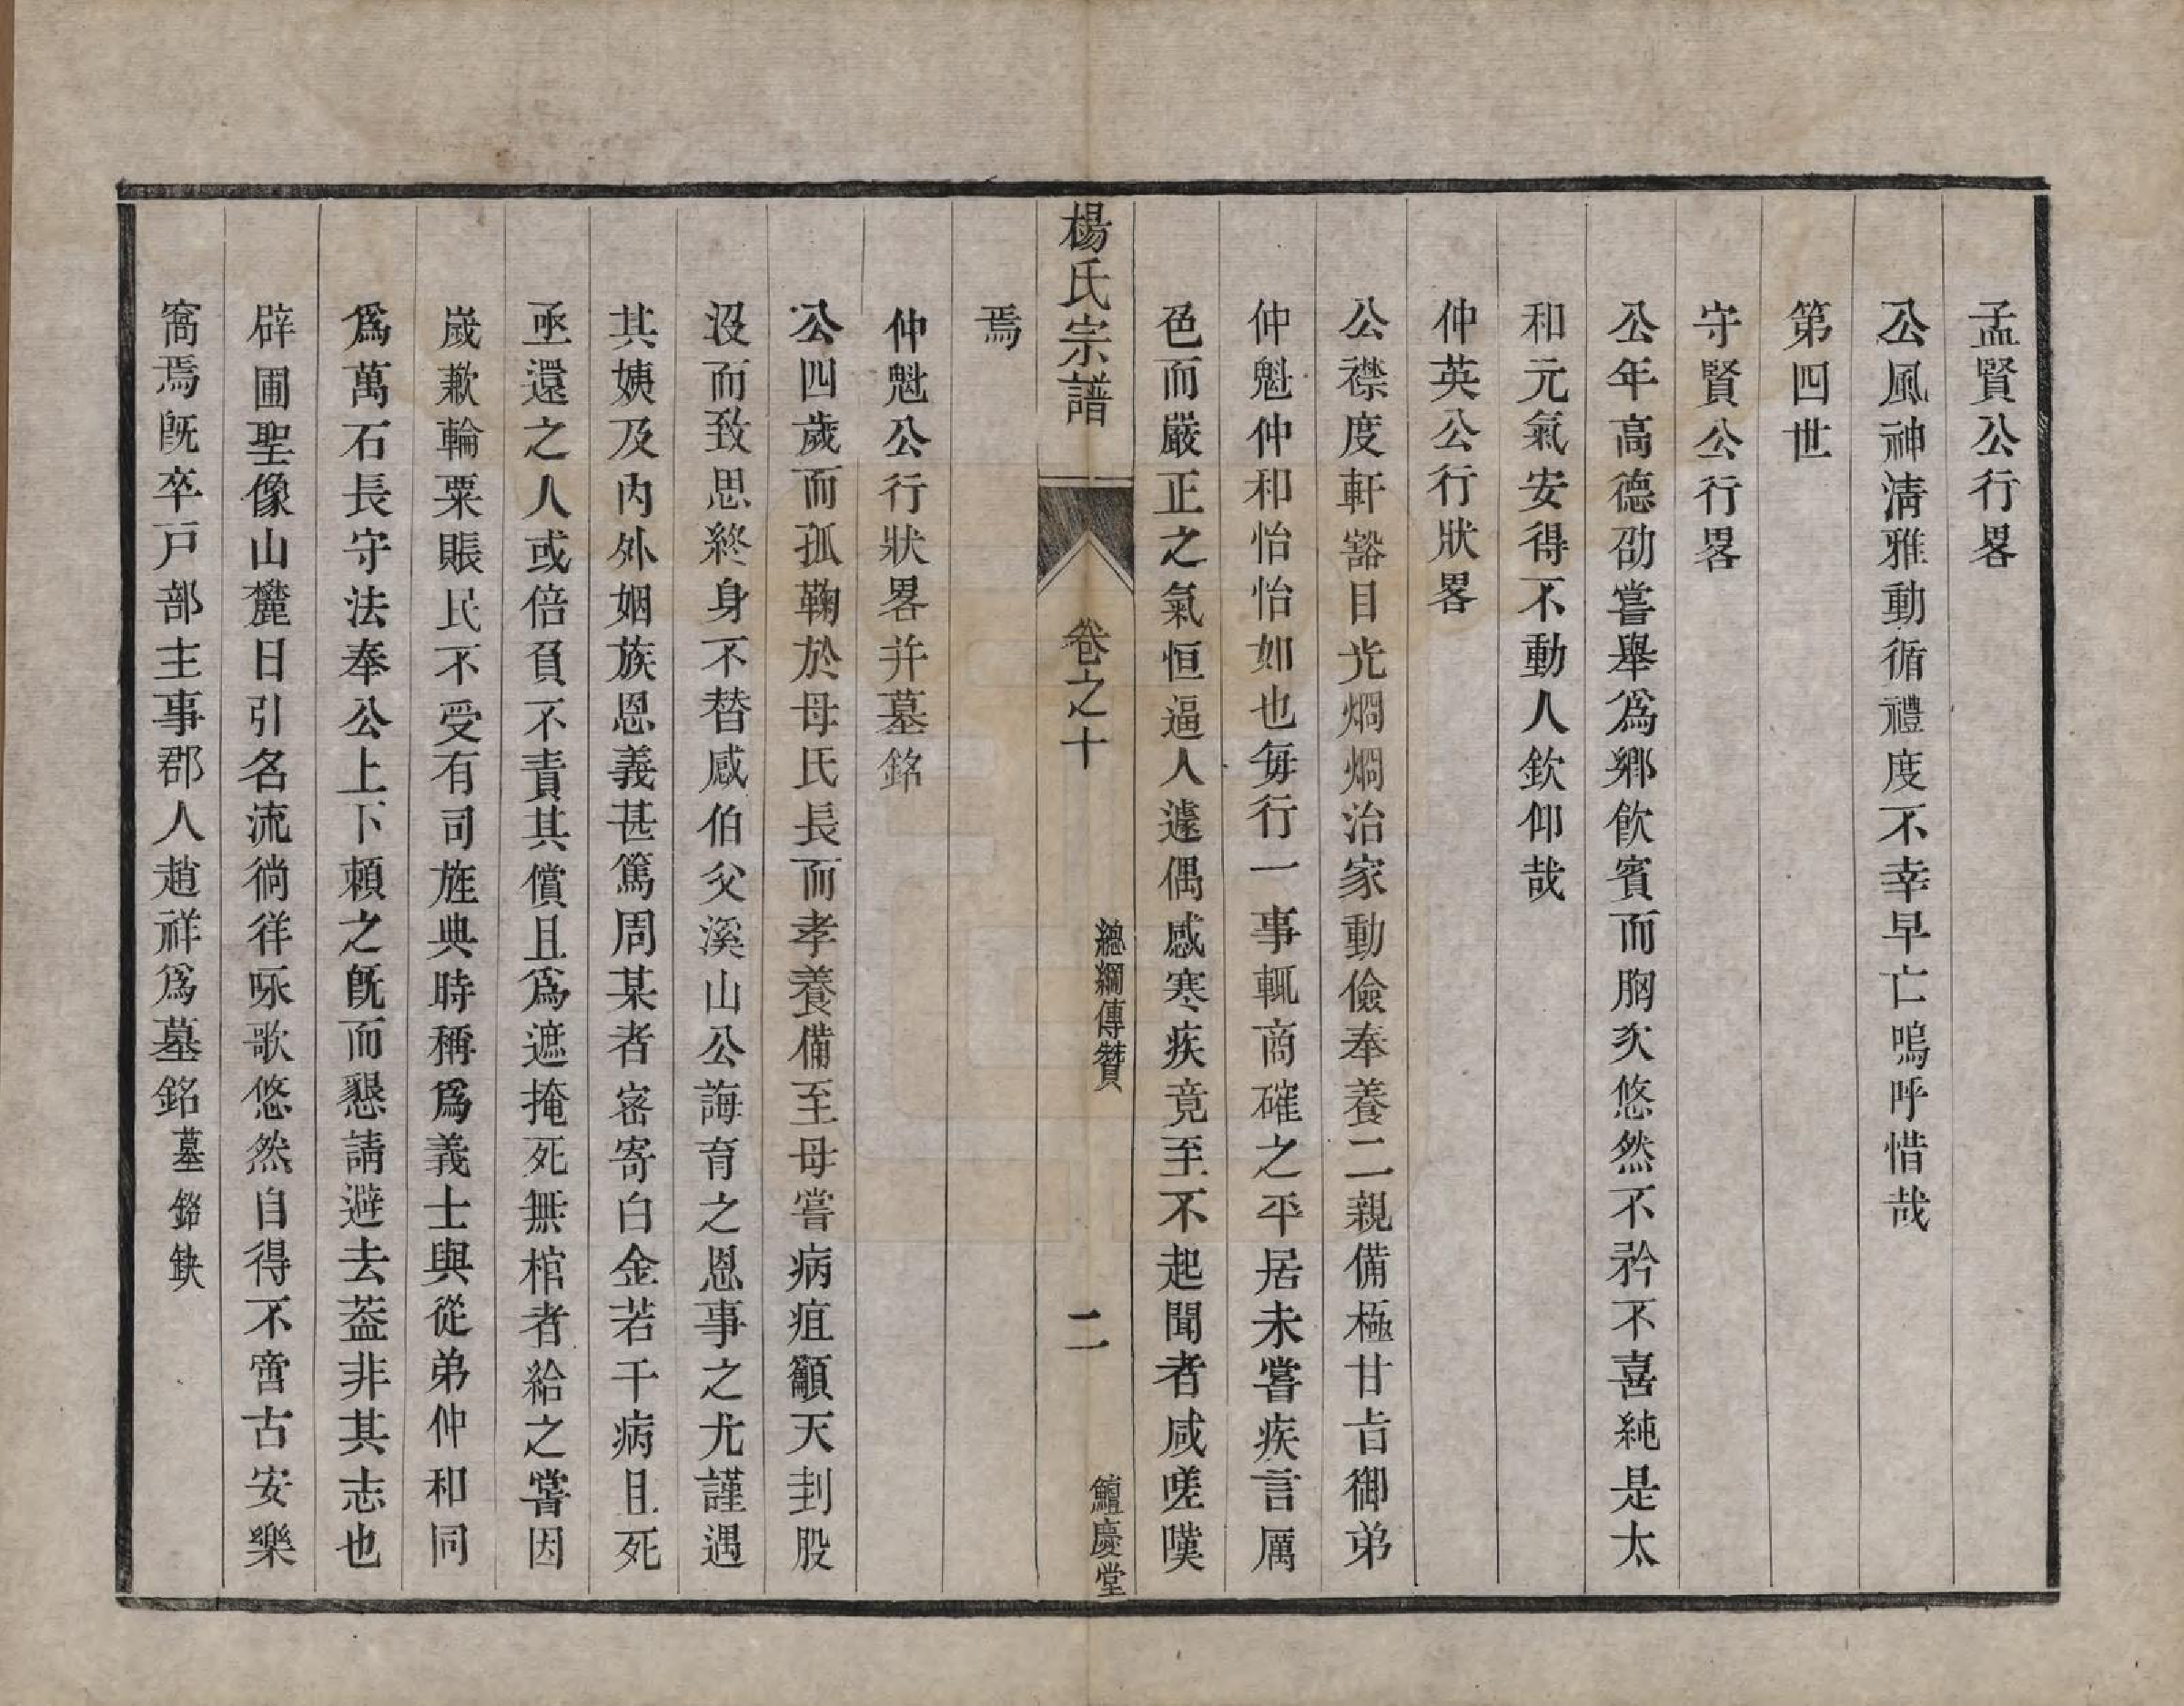 孟賢公行畧
公風神淸雅動循禮度不幸早亡嗚呼惜哉
第四世
守賢公行畧
公年高德劭嘗舉爲鄉飮賓而胸次悠然不矜不喜純是太
和元氣安得不動人欽仰哉
仲英公行狀畧
公襟度軒豁目光烱烱治家勤儉奉養二親備極甘旨御弟
仲魁仲和怡怡如也每行一事輒商確之平居未嘗疾言厲
色而嚴正之氣恒逼人遽偶感寒疾竟至不起聞者咸嗟嘆
焉
楊氏宗譜
卷之十
總綱傳贊
二
鱣慶堂
仲魁公行狀畧并墓銘
公四歲而孤鞠於母氏長而孝養備至母嘗病疽籲天刲股
沒而致思終身不替感伯父溪山公誨育之恩事之尤謹遇
其姨及內外姻族恩義甚篤周某者密寄白金若干病且死
亟還之人或倍負不責其償且爲遮掩死無棺者給之嘗因
歲歉輸粟賑民不受有司旌典時稱爲義士與從弟仲和同
爲萬石長守法奉公上下賴之旣而懇請避去葢非其志也
辟圃聖像山麓日引名流徜徉咏歌悠然自得不啻古安樂
窩焉旣卒戸部主事郡人趙祥爲墓銘墓銘缺